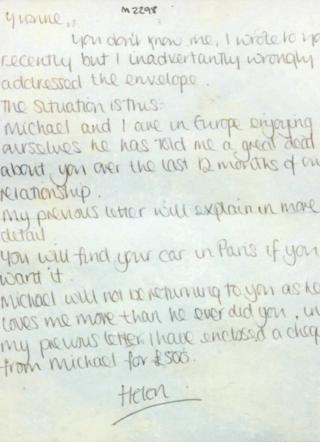 M2298
Yvonne,
You don't know me, I wrote to yo
recently but I inadvertantly wrongly
addressed the envelope.
The Situation is thus:
Michael and I are in Europe enjoying
ourselves he has told me a great deal
about you over the last 12 months of ou
relationship.
My previous letter will explain in more
detail
You will find your car in Paris if you
want it.
Michael will not be returning to you as he
loves me more than he ever did you, in
my previous letter I have enclosed a cheq
from Michael for £500.
Helen